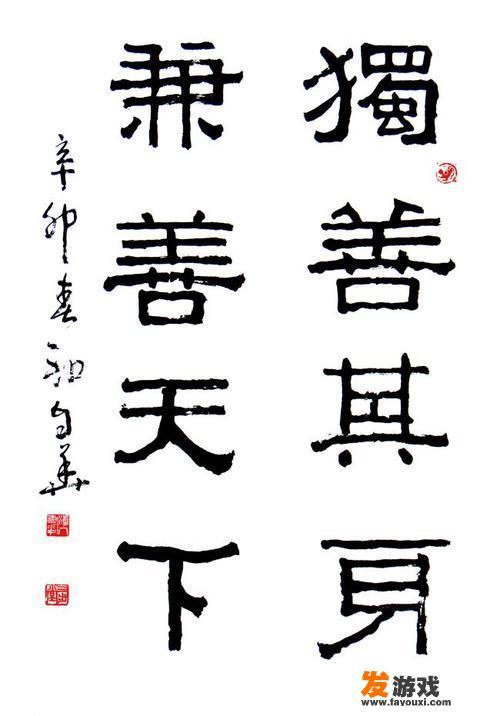 獨善其身
兼善天下
辛卯春初自華
发游戏
www.fayouxi.com